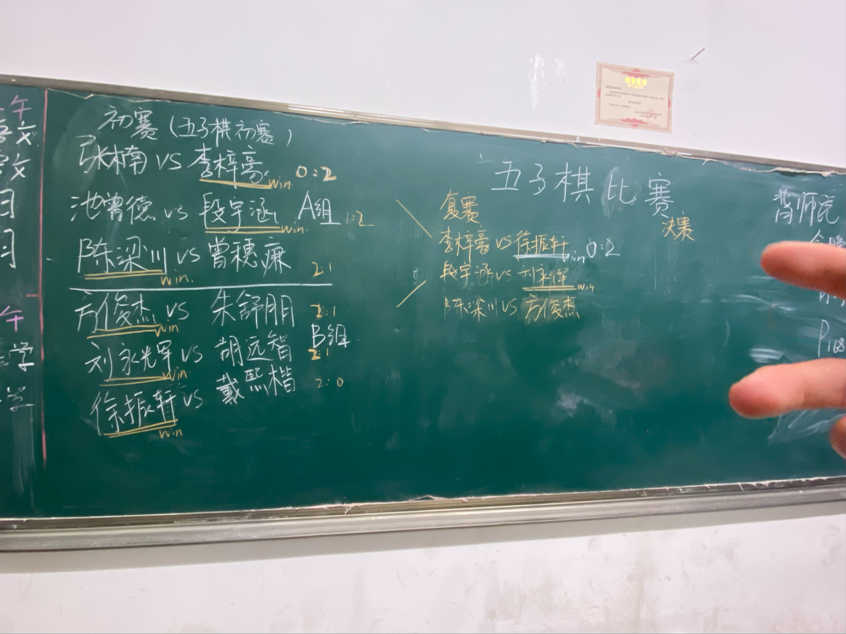 午
文
文
午
学
学
初赛(五子棋初赛)
张楠 VS 李梓豪 win 0:2
池曾德 vs 段宇涵 A组 1:2
win
陈梁川 VS 曾穗廉 2:1
win
方俊杰 VS 朱舒朋 2:1
win
B组
刘永光军 VS 胡远智 2:1
win
徐振轩 VS 戴熙楷 2:0
win
五子棋比赛
复赛
决赛
李梓豪 VS 徐振轩 win 0:2
段宇涵 VS win
陈梁川 VS 方俊杰